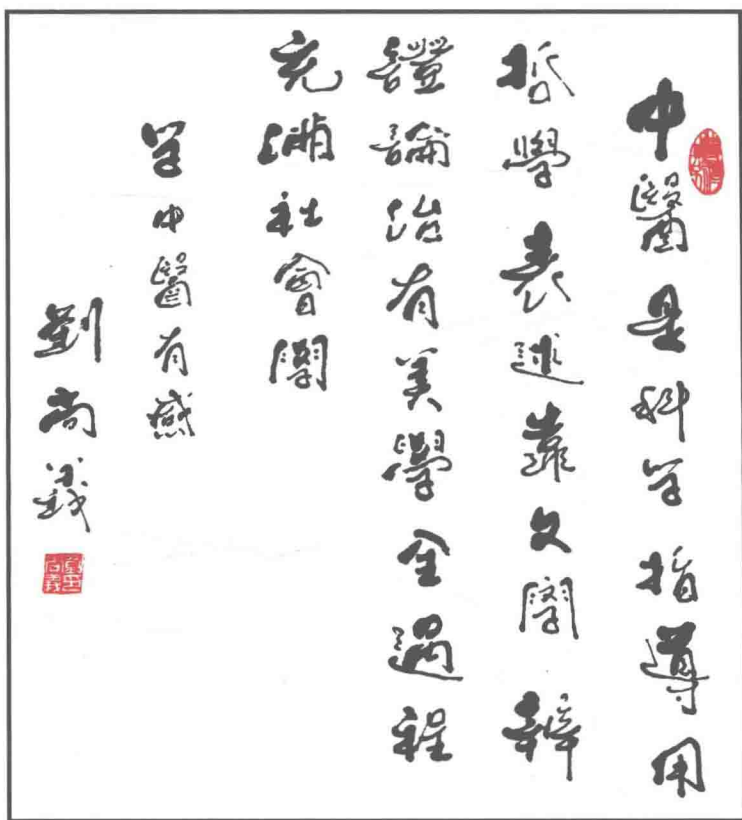 中醫是科学指導用
哲學表述靠文學辨
證論治有美學全過程
充滿社會學
学中醫有感
劉尚義